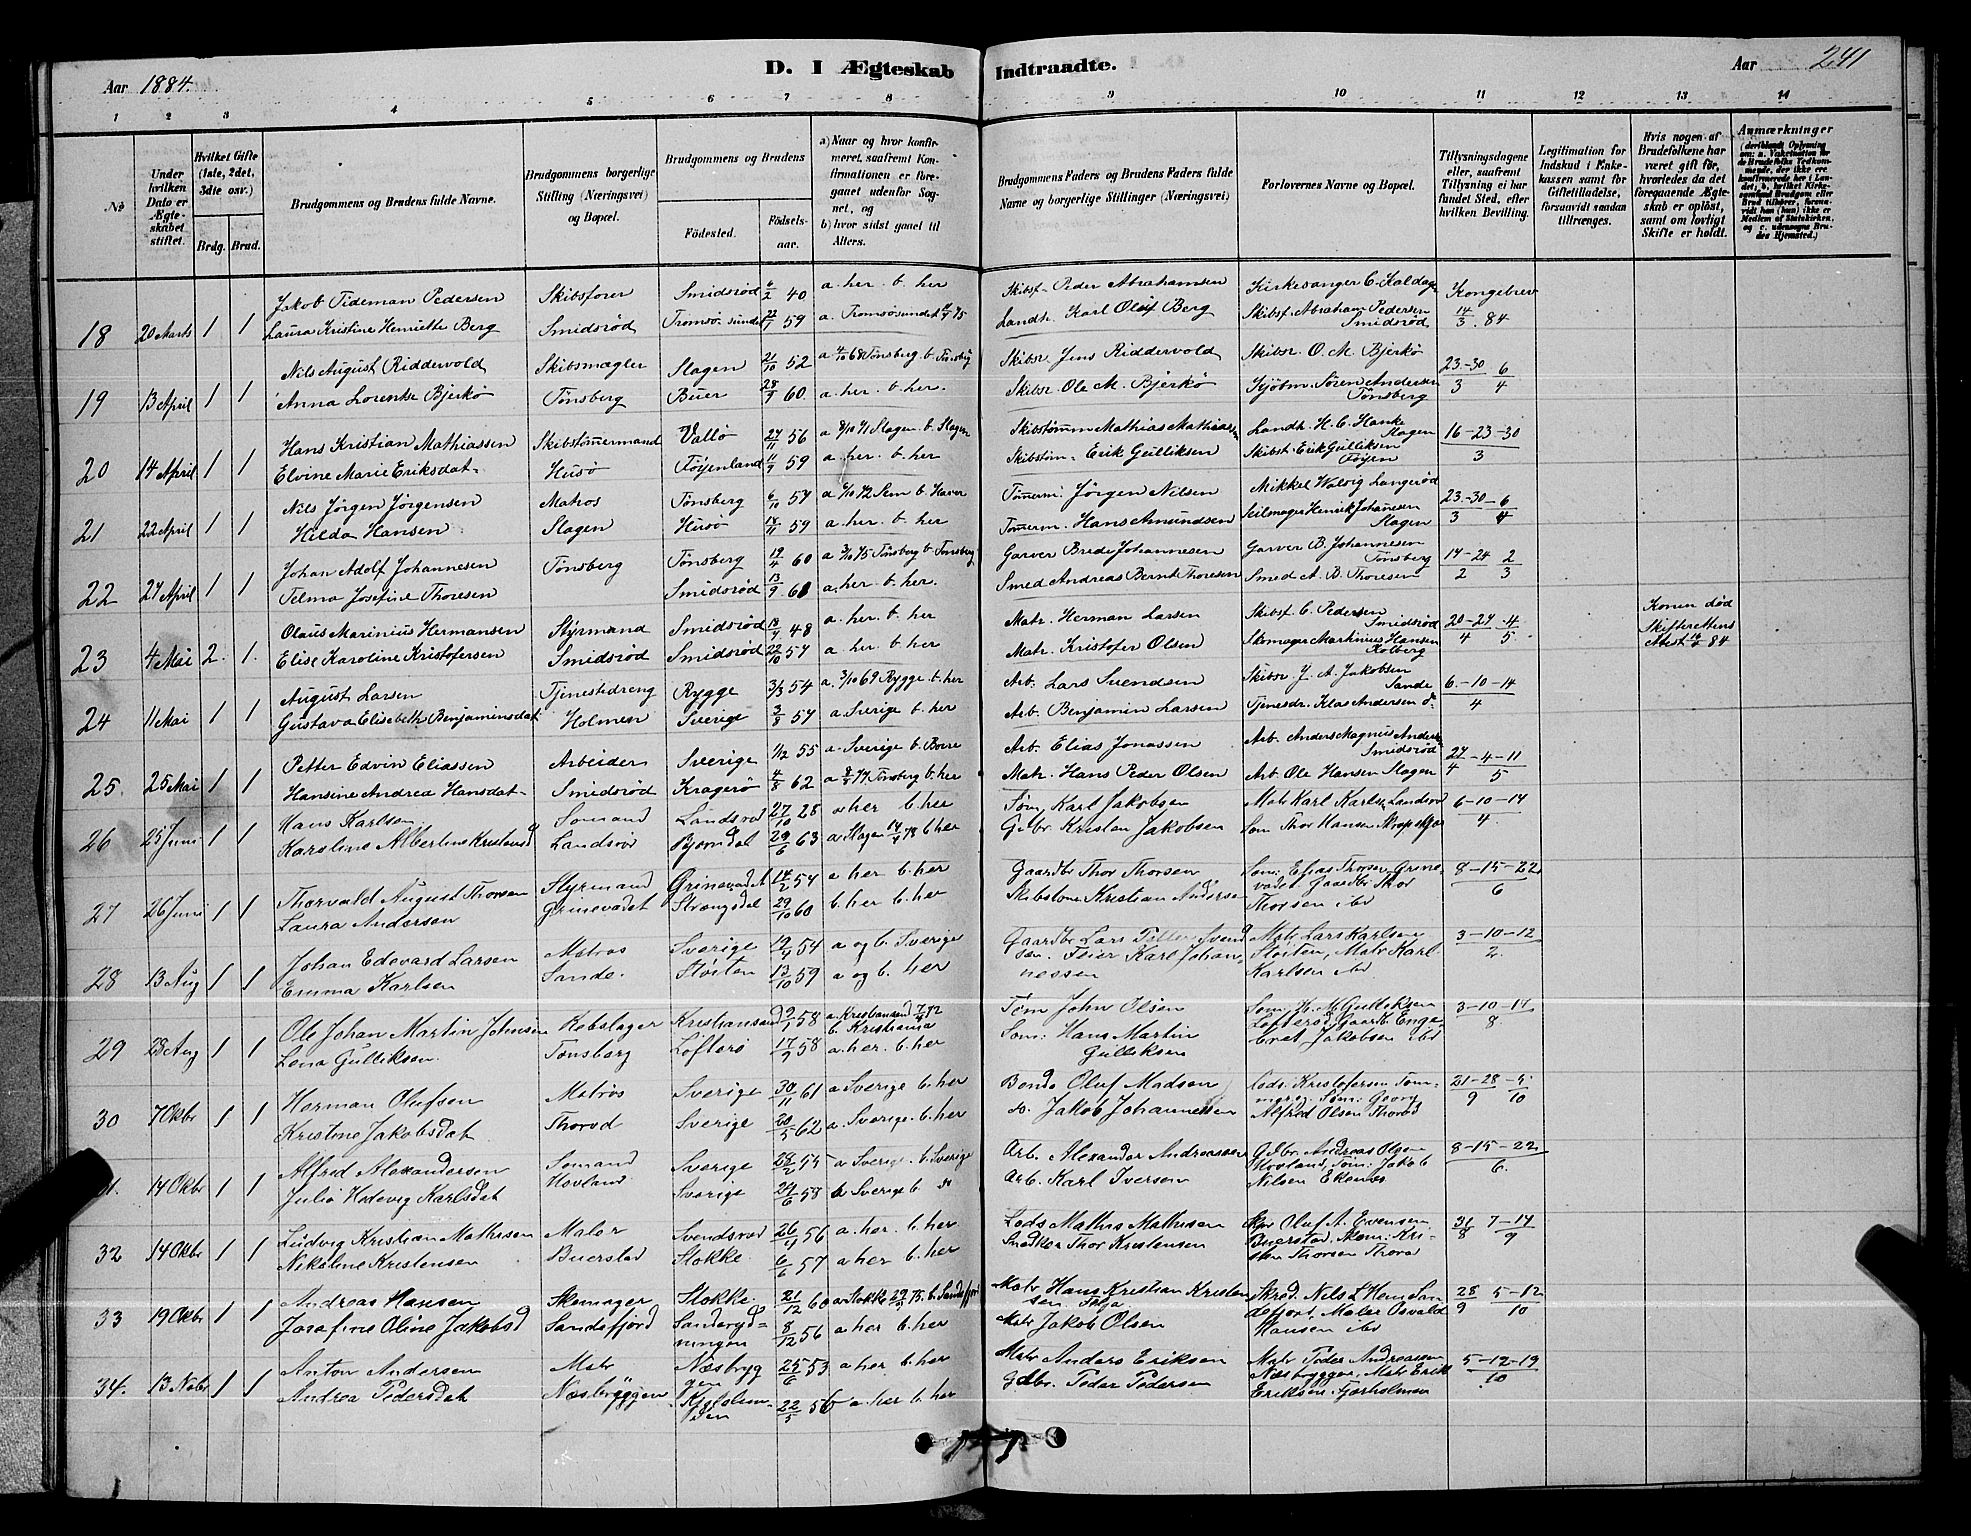 Aar 1884.
D. I Ægteskab Indtraadte.
Aar
241
1 2 3 4 5 6 7 8 9 10 11 12 13 14
No
Under hvilken Dato er Ægteskabet stiftet.
Hvilket Gifte (1ste, 2det, 3die osv.)
Brdg. Brud.
Brudgommens og Brudens fulde Navne.
Brudgommens borgerlige Stilling (Næringsvei) og Bopæl.
Brudgommens og Brudens
Fødested.
Fødselsaar.
a) Naar og hvor konfirmeret, saafremt Konfirmationen er foregaaet udenfor Sognet, og
b) hvor sidst gaaet til Alters.
Brudgommens Faders og Brudens Faders fulde Navne og borgerlige Stillinger (Næringsvei)
Forlovernes Navne og Bopæl.
Tillysningsdagene eller, saafremt Tillysning ei har fundet Sted, efter hvilken Bevilling.
Legitimation for Indskud i Enkekassen samt for Giftetilladelse, forsaavidt saadan tiltrænges.
Hvis nogen af Brudefolkene har været gift før, hvorledes da det foregaaende Ægteskab er opløst, samt om lovligt Skifte er holdt.
Anmærkninger
18 20 Marts 1 1 Jakob Tideman Pedersen Skibsfører Smidsrød 6/2 40 a. her. b. her Skibsf. Peder Abrahamsen Kirkesanger C. Kaldager Kongebrev
Laura Kristine Henriette Berg Smidsrød Tromsøsundet 22/7 59 a. Tromsøsundet 75 Landh. Karl Oluf Berg Skibsf. Abraham Pedersen Smidsrød 14/3. 84
19 13 April 1 1 Nils August Riddervold Skibsmægler Slagen 21/10 52 a 4/10 68 Tønsberg. b. Tønsberg Skibsr. Jens Riddervold Skibsr. O. M. Bjerkø 23-30/3 6/4
Anna Lorentse Bjerkø Tønsberg Buer 28/9 60 a. her. b. her. Skibsr Ole M. Bjerkø Kjøbm. Søren Andersen Tønsberg
20 14 April 1 1 Hans Kristian Mathiassen Skibstømmermand Vallø 27/11 56 a 8/10 71 Slagen b. Slagen Skibstømm Mathias Mathiassen Landh. H. C. Hanke Slagen 16-23-30/3
Elvine Marie Eriksdat- Husø Føyenland 11/9 59 a. her. b. her Skibstøm- Erik Gulliksen Skibst. Erik Gulliksen Føyen
21 22 April 1 1 Nils Jörgen Jörgensen Matros Tønsberg 6/10 57 a 6/10 72 Sem b. Havre Tømerm. Jörgen Nilsen Mikkel Walvig Langerød 23-30/3 -6/4
Hilda Hansen Slagen Husø 14/11 59 a. her. b. her Tømerm. Hans Amundsen Seilmager Henrik Johannesen Slagen
22 27 April 1 1 Johan Adolf Johannesen Tønsberg Tønsberg 19/4 60 a 3/10 75 Tønsberg b. Tønsberg Garver Brede Johannesen Garver B. Johannesen Tønsberg 17-24/2 2/3
Telma Josefine Thoresen Smidsrød 13/9 61 a. her b. her. Smed Andreas Bernt Thoresen Smed A. B. Thoresen
23 4 Mai 2. 1. Olaus Marinius Hermansen Styrmand Smidsrød 18/9 48 a. her. b. her Matr. Herman Larsen Skibsf. C. Pedersen Smidsrød 20-27/4 -4/5 Konen død Skifterettens Attest 84
Elise Karoline Kristofersen Smidsrød Smidsrød 22/10 57 a. her b. her Matr. Kristofer Olsen Skomager Martinius Hansen Kolberg
24 11 Mai 1 1 August Larsen Tjenestedreng Rygge 3/3 54 a. 3/10 69 Rygge. b. her Arb. Lars Svendsen Skibsr. J. A. Jakobsen Sande 6-10-14/4
Gustava Elisebeth Benjaminsdat Holmen Sverige 3/8 57 a. Sverige b. her Arb. Benjamin Larsen Tjenesdr. Klas Andersen d.
25. 25 Mai 1 1 Petter Edvin Eliassen Arbeider Sverige 1/12 55 a. Sverige b. Borre Arb. Elias Jonassen Arb. Anders Magnus Andersen Smidsrød 27/4 -4-11/5
Hansine Andrea Hansdat- Smidsrød Kragerø 4/8 62 a 77 Tønsberg b. her Matr. Hans Peder Olsen Arb Ole Hansen Slagen
26 25 Juni 1 1 Hans Karlsen Sømand Landsrød 27/10 28 a her b. her Søm, Karl Jakobsen Matr Karl Karlsn Landsrød 6-10-14/4
Karoline Albertine Kristensd Landsrød Bjørndal 29/6 63 a. Slagen 78 b her Gdbr. Kristen Jakobsen Søm Thor Hansen
27 26 Juni 1 1 Thorvald August Thorsen Styrmand Grinevadet 14/2 54 a her b. her Gaardbr Thor Thorsen Søm: Elias Thorsen Grinevadet Gaardbr Thor Thorsen ibd 8-15-22/6
Laura Andersen Grinevadet Strængsdal 29/10 60 b. her b. her Skibstøm Kristian Andersen
28 13 Aug 1 1 Johan Edevard Larsen Matros Sverige 19/4 54 a og b. Sverige Gaardbr Lars Petter Svendsen. Matr Lars Karlsen Støiten, Matr Karl Karlsen ibd 3-10-12/2
Emma Karlsen Sande. Støiten 13/10 59 a og b. her Feier Karl Johannessen
29 28 Aug 1 1 Ole Johan Martin Johnsen Rebslager Kristiansand 2/1 58 a. Kristiansand 72 b. Kristiania Tøm John Olsen Søm: H. M. Gulliksen Løfterød, Gaardb. Engebret Jakobsen ibd 3-10-17/8
Lena Gulliksen. Tønsberg Løfterø 17/9 58 a. her. b. her Søm: Hans Martin Gulliksen
30 7 Oktbr 1 1 Herman Olufsen Matros Sverige 30/11 61 a Sverige b. her Bonde Oluf Madsen Lods: Kristofersen Tømmerøg. Søm: Georg Alfred Olsen Thorød 21-28/9 -5/10
Kristine Jakobsdat Thorød Sverige 20/5 62 a. Sverige. b. her do. Jakob Johannessen
31. 14 Oktbr 1 1 Alfred Alexandersen Sømand Sverige 28/2 55 a Sverige. b. Sverige Arb. Alexander Andreassen Gdbr. Andreas Olsen Hovland, Søm: Jakob Nilsen Ekenæs 8-15-22/6.
Julia Hedevig Karlsdat Hovland. Sverige 24/6 58 b Sverige b do Arb. Karl Iversen
32 14 Oktbr 1 1 Ludvig Kristian Mathisen Maler Svendsrød 26/4 56 a. her. b. her Lods Mathis Mathisen Skpr Oluf A. Evensen Buerstad, Søm: Kristen Thorsen Thorød 31/8 7-14/9
Nikoline Kristensen Buerstad Stokke 6/6 57 a her b. her Snedker Thor Kristensen
33 19 Oktbr 1 1 Andreas Hansen Skomager Stokke. 21/12 60 a Stokke 75. b. Sandefjord Matr Hans Kristian Kristensen Skræd. Nils L Hem Sandefjord, Maler Osvald Hansen ibd 28/9 5-12/10
Josefine Oline Jakobsd Sandefjord Sanderyd=ningen 8/12 56 a her b. her Matr Jakob Olsen
34. 13 Novbr 1 1 Anton Andersen Matr Næsbryggen 25/6 53 a her b. her Matr Anders Eriksen Matr Peder Andreassen Næsbryggen, Matr Erik Eriksen Fjærholmen 5-12-19/10
Andrea Pedersdat Næsbryggen 22/5 56 a. her b. her Gdbr. Peder Pedersen